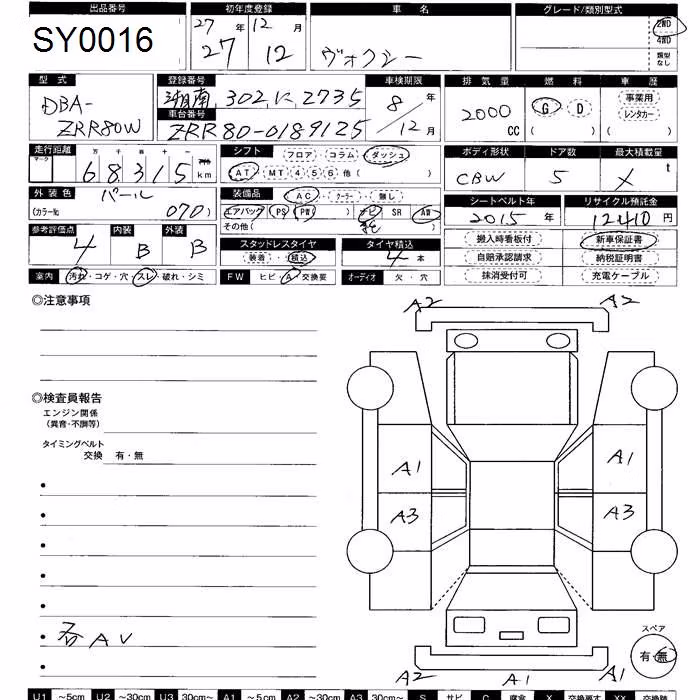 出品番号 初年度登録 車名 グレード/類別型式
SY0016 27年 12月 2WD
27 12 ヴォクシー 4WD
類型なし
型式 登録番号 車検期限 排気量 燃料 車歴
DBA-ZRR80W 湘南 302 に 2735 8年 2000CC G D 事業用
車台番号 レンタカー
ZRR80-0189125 /12月 ( ) ( )
走行距離 シフト フロア コラム ダッシュ ボディ形状 ドア数 最大積載量
マーク 万 千 百 十 一
68315 km AT MT 4 5 6 他( ) CBW 5 X t
外装色 パール 装備品 AC クーラー 無し シートベルト年 リサイクル預託金
(カラー№ 070) エアバッグ PS PW ナビ SR AW 2015年 12410円
参考評価点 内装 外装 その他( )
4 B B 搬入時看板付 新車保証書
スタッドレスタイヤ タイヤ積込 自賠承認請求 納税証明書
装着・積込 4本 抹消受付可 充電ケーブル
室内 汚れ・コゲ・穴 スレ・破れ・シミ FW ヒビ・A・交換要 オーディオ 欠・穴
◎注意事項
A2 A2
◎検査員報告
エンジン関係
(異音・不調等)
タイミングベルト
交換 有・無
A1 A1
A3 A3
AV
スペア
有・無
A2 A1 A2
U1 ~5cm U2 ~30cm U3 30cm~ A1 ~5cm A2 ~30cm A3 30cm~ S サビ C 腐食 X 交換要す XX 交換跡